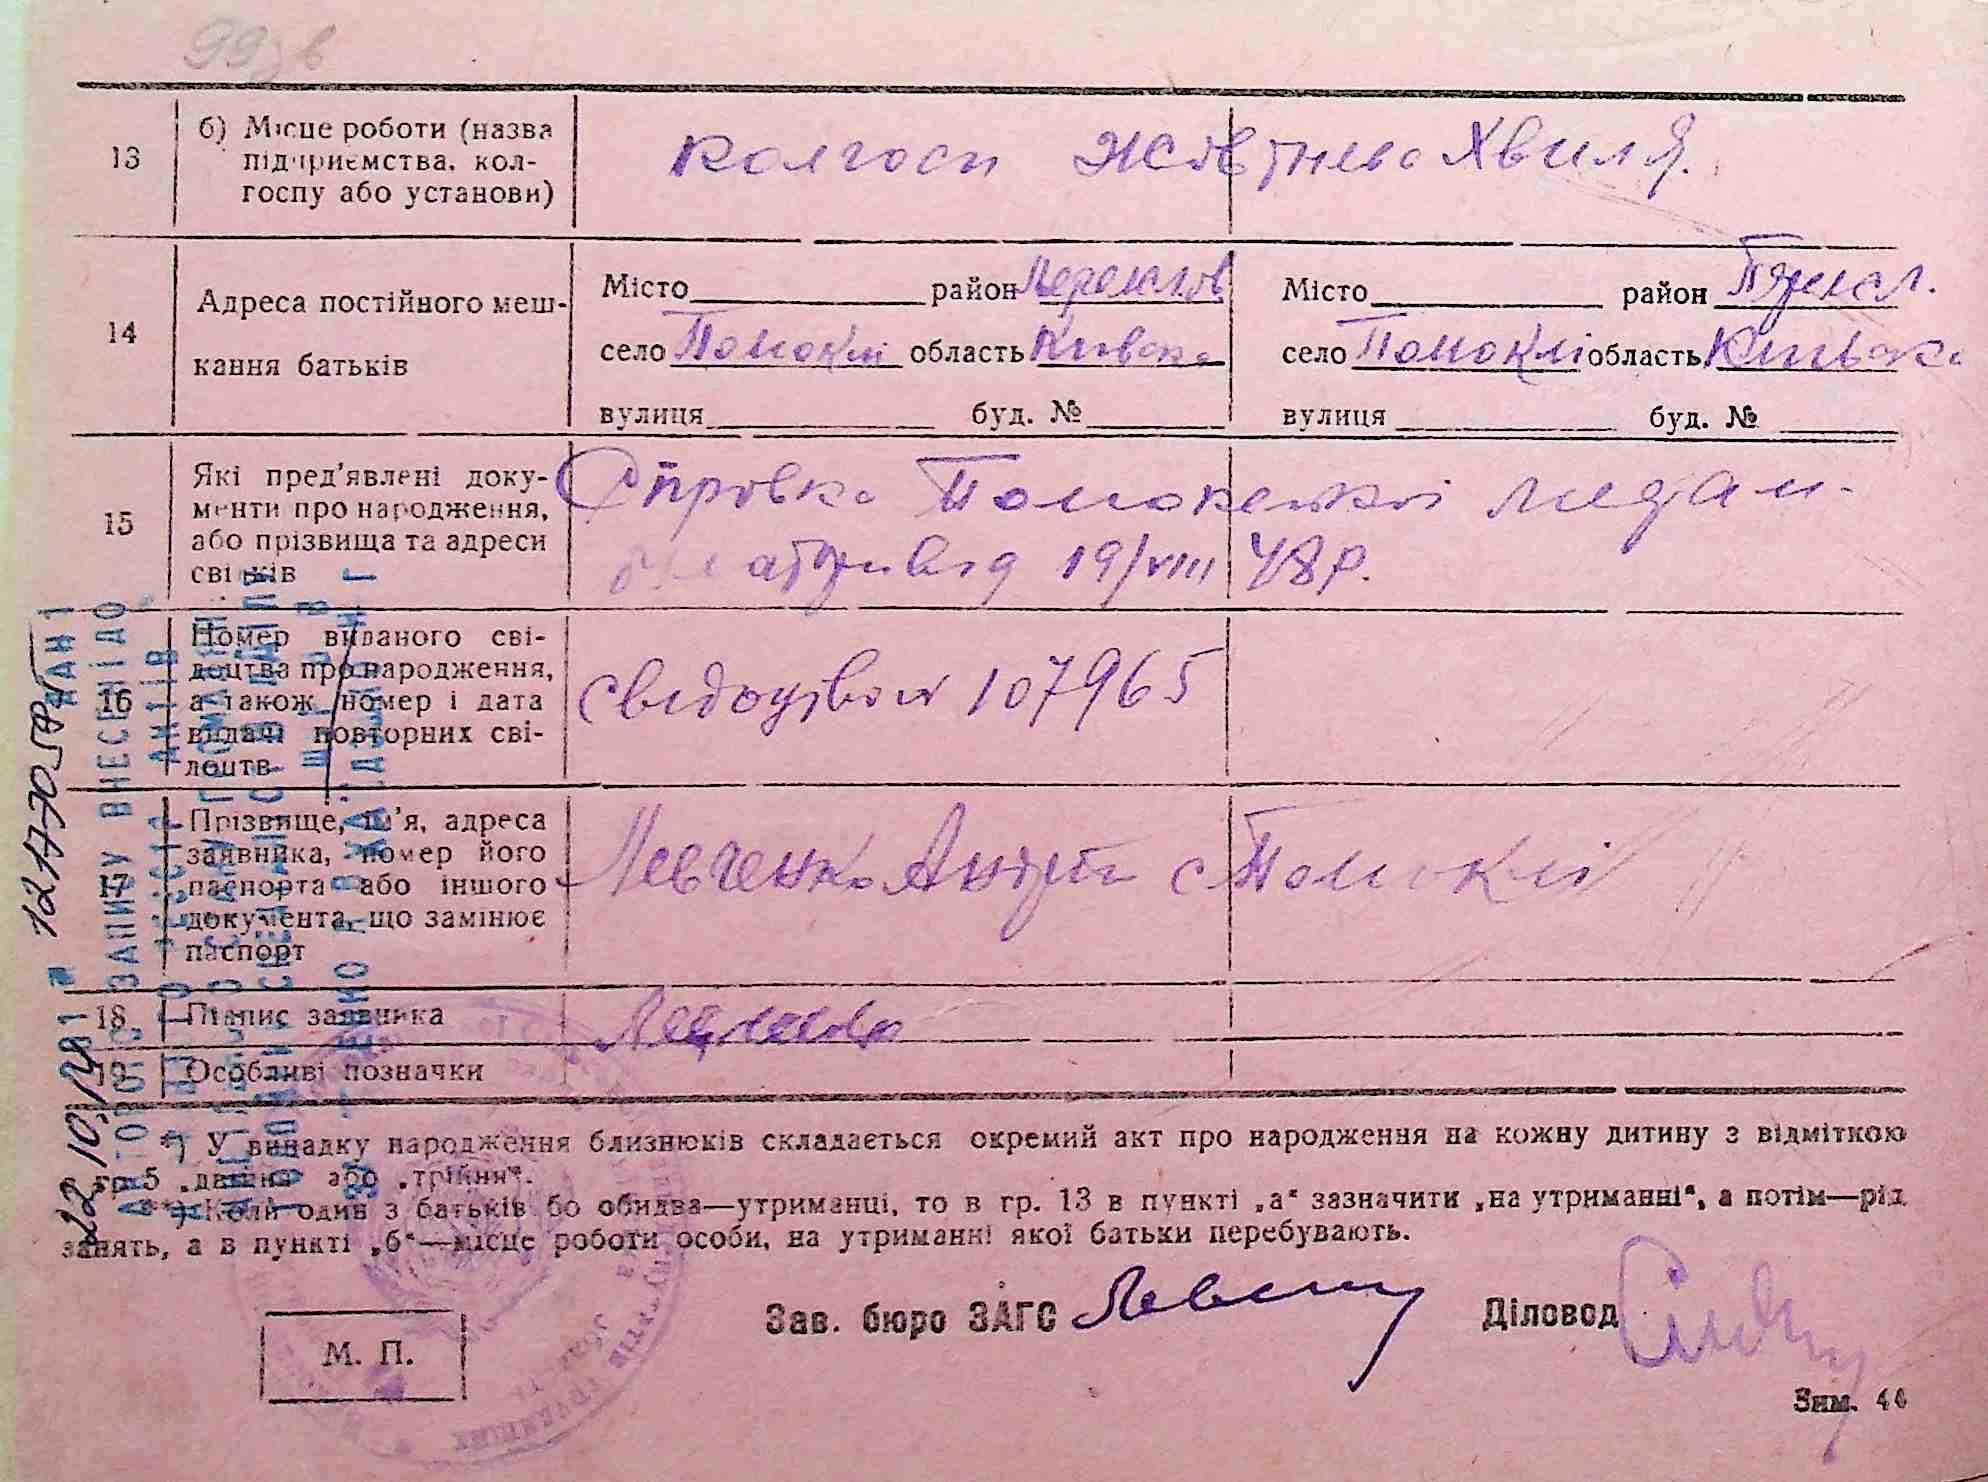 13
б) Місце роботи (назва
підприємства, кол-
госпу або установи)
колгосп Жовтнева Хвиля.
14
Адреса постійного меш-
кання батьків
Місто район Переяслов
село Помоклі область Київська
вулиця буд. №
Місто район Переясл.
село Помоклі область Київська
вулиця буд. №
15
Які пред'явлені доку-
менти про народження,
або прізвища та адреси
свідків
Справка Помокельської
від 19/VIII 48р.
16
Номер виданого сві-
доцтва про народження,
а також номер і дата
видачі повторних сві-
доцтв
свідоцтво № 107965
17
Прізвище, ім'я, адреса
заявника, номер його
паспорта або іншого
документа, що замінює
паспорт
Левченко Андрій с Помоклі
18
Підпис заявника
19
Особливі позначки
*) У випадку народження близнюків складається окремий акт про народження на кожну дитину з відміткою
в гр. 5 „двійня“ або „трійня“.
**) Коли один з батьків бо обидва—утриманці, то в гр. 13 в пункті „а“ зазначити „на утриманні“, а потім—рід
занять, а в пункті „б“—місце роботи особи, на утриманні якої батьки перебувають.
Зав. бюро ЗАГС
Діловод
М. П.
Зим. 44